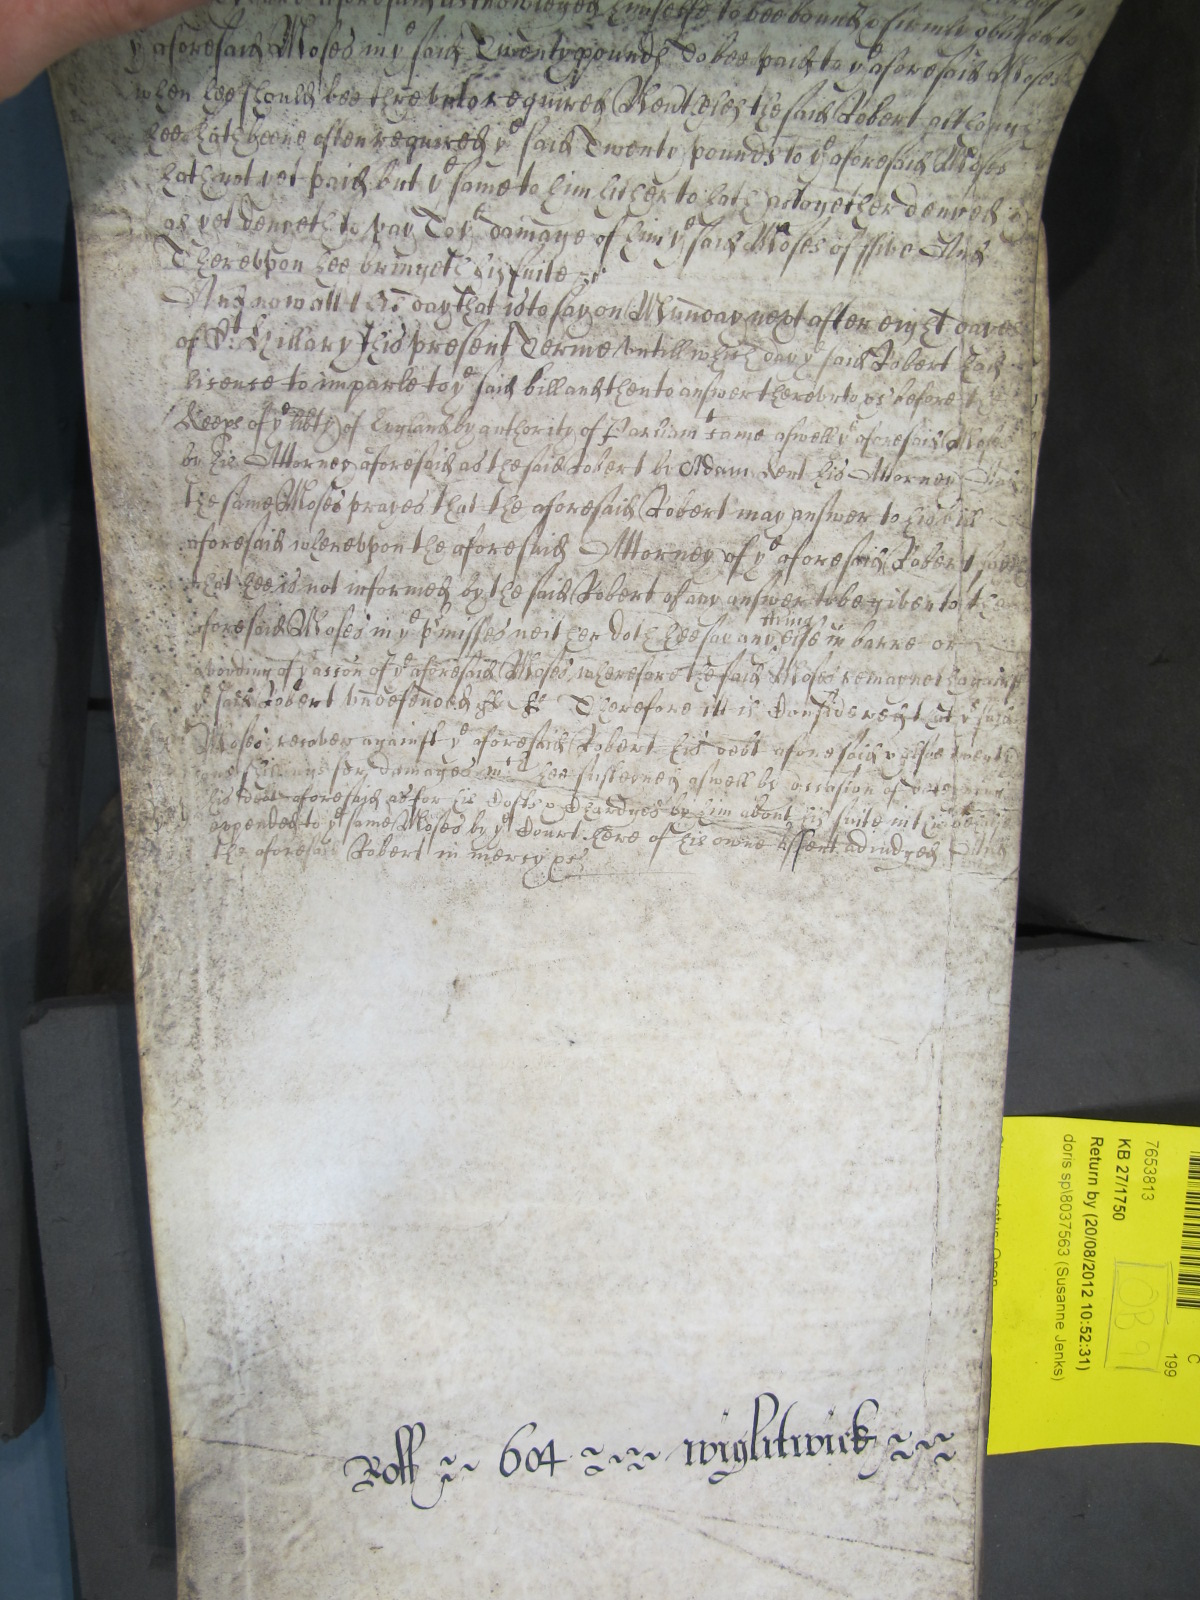 aforesaid acknowledged himselfe to bee bound & firmly obliged to
yͤ aforesaid Moses in yͤ said Twenty pounds To bee paid to yͤ aforesaid Moses
when hee should bee therevnto required Neuthelesse the said Robert althoug
hee hath beene often required yͤ said Twenty pounds to yͤ aforesaid Moses
hath not yet paid but yͤ same to him hitherto hath altogether denyed &
as yet denyeth to pay To yͤ damage of him yͤ said Moses of ffive And
Therevpon hee bringeth his suite &c
And now att this day that is to say on Munday next after eight dayes
of Sᵗ Hillary this present Terme vntill which day yͤ said Robert had
licence to imparle to yͤ said bill and then to answer therevnto &c before the
Keeps of yͤ libty of England by authority of Parliamᵗ came aswell yͤ aforesaid Moses
by his Attorney aforesaid as the said Robert by Adam Attorney And
the same Moses prayes that the aforesaid Robert may answer to his bill
aforesaid wherevpon the aforesaid Attorney of yͤ aforesaid Robert saith
that hee is not informed by the said Robert of any answer to be given to the
aforesaid Moses in yͤ pᵐisses neither doth hee say any thing else in barre or
avoyding of yͤ accon of yͤ aforesaid Moses, wherefore the said Moses remayneth against
yͤ said Robert vndefended &c &c Therefore itt is Considered that yͤ said
Moses recover against yͤ aforesaid Robert his debt aforesaid & alsoe twenty
one shillings for damages wᶜʰ hee susteyned aswell by occasion of deteyning
his debt aforesaid as for his Costs & Chardges by him about his suite in this behalfe
expended to yͤ same Moses by yͤ Court here of his owne assent adiudged And
the aforesaid Robert in mercy &c
Roll 604 wightwick
7653813
KB 27/1750
Return by (20/08/2012 10:52:31)
doris sp\8037563 (Susanne Jenks)
199
C